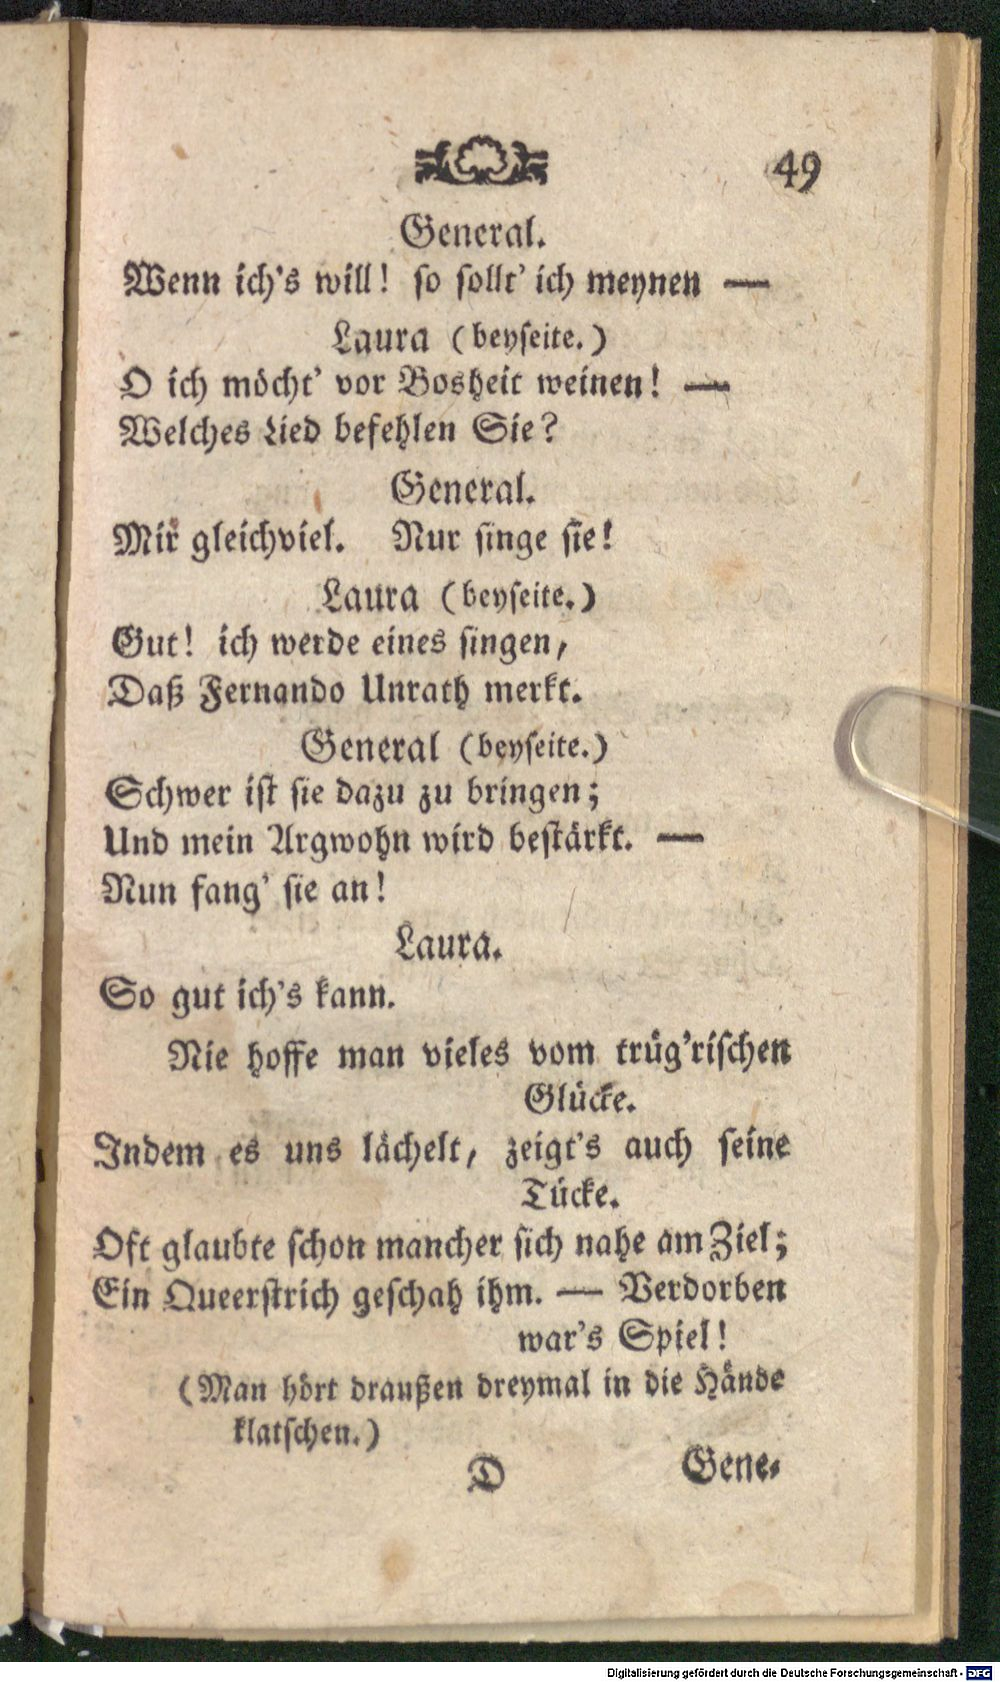 49
General.
Wenn ich's will! so sollt' ich meynen —
Laura (beyseite.)
O ich möcht' vor Bosheit weinen! —
Welches Lied befehlen Sie?
General.
Mir gleichviel. Nur singe sie!
Laura (beyseite.)
Gut! ich werde eines singen,
Daß Fernando Unrath merkt.
General (beyseite.)
Schwer ist sie dazu zu bringen;
Und mein Argwohn wird bestärkt. —
Nun fang' sie an!
Laura.
So gut ich's kann.
Nie hoffe man vieles vom trüg'rischen
Glücke.
Indem es uns lächelt, zeigt's auch seine
Tücke.
Oft glaubte schon mancher sich nahe am Ziel;
Ein Queerstrich geschah ihm. — Verdorben
war's Spiel!
(Man hört draußen dreymal in die Hände
klatschen.)
D Gene-
Digitalisierung gefördert durch die Deutsche Forschungsgemeinschaft - DFG